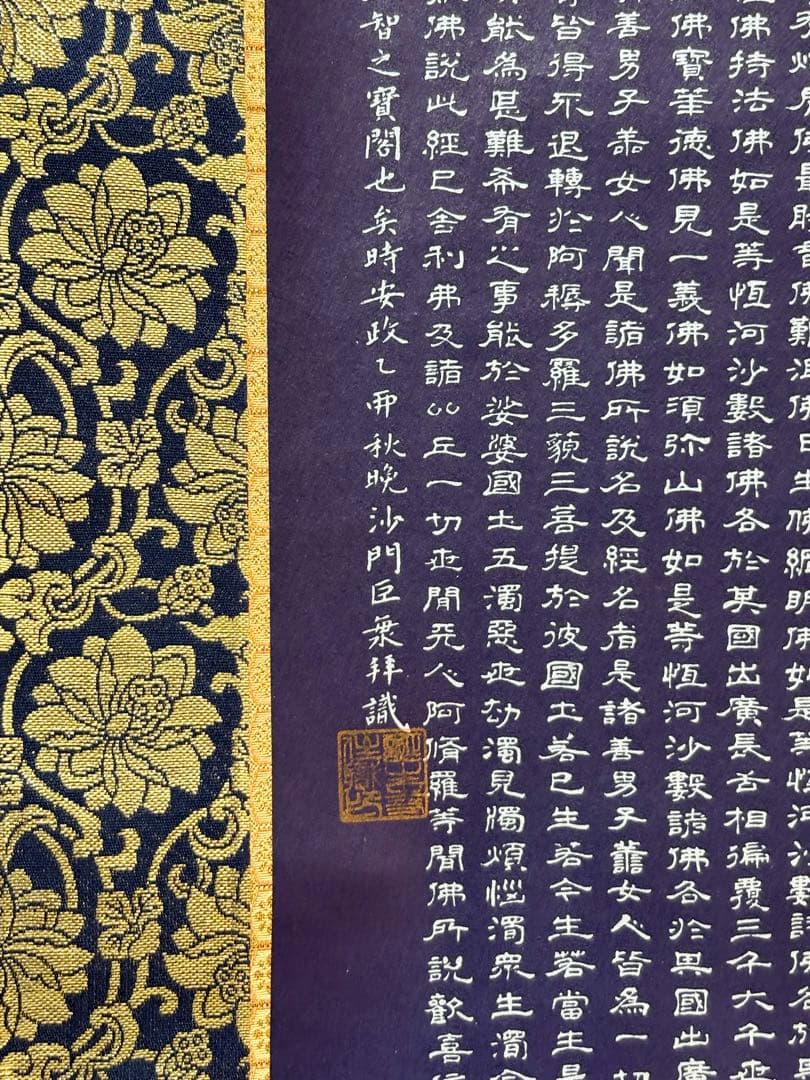 佛持法佛如是等恆河沙數諸佛各於其國出廣長舌相徧覆三千大千世
佛寶華德佛見一義佛如須弥山佛如是等恆河沙數諸佛各於其國出廣
善男子善女人聞是諸佛所說名及經名者是諸善男子善女人皆為一切
皆得不退轉於阿耨多羅三藐三菩提於彼國土若已生若今生若當生是
能為甚難希有之事能於娑婆國土五濁惡世劫濁見濁煩惱濁眾生濁命
佛說此經已舍利弗及諸比丘一切世間天人阿脩羅等聞佛所說歡喜信
智之寶閣也矣時安政乙卯秋晚沙門巨舜拜識